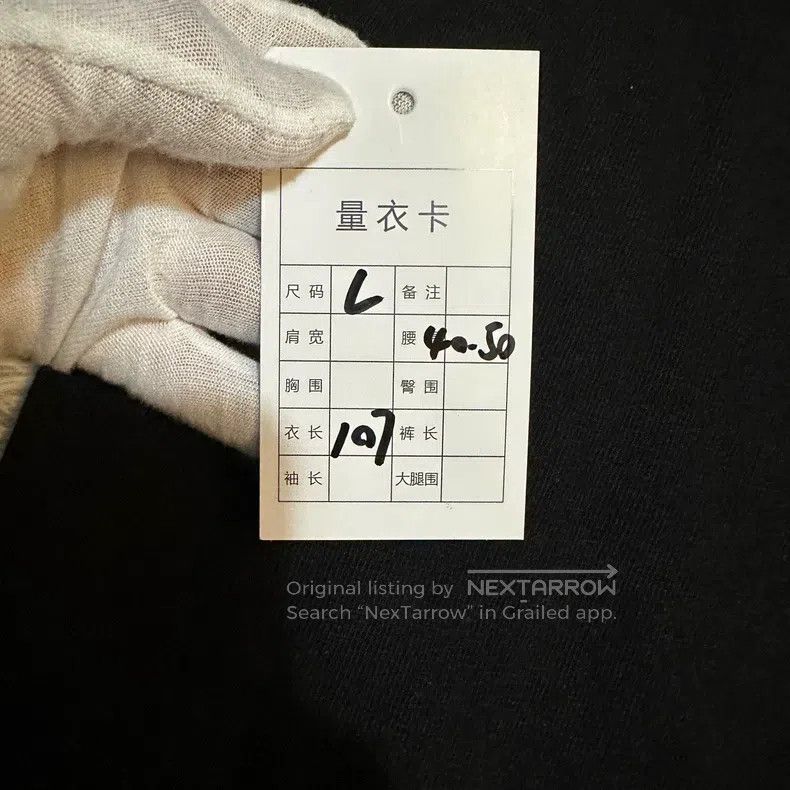 量衣卡
尺码 L 备注
肩宽 腰 40-50
胸围 臀围
衣长 107 裤长
袖长 大腿围
Original listing by NEXTARROW
Search “NexTarrow” in Grailed app.